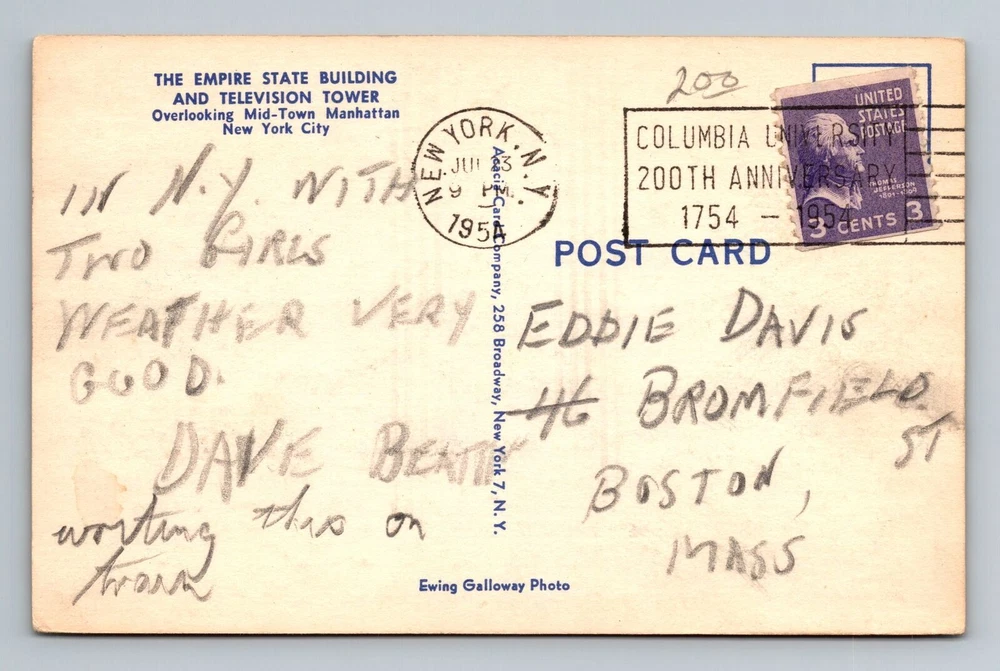 THE EMPIRE STATE BUILDING
AND TELEVISION TOWER
Overlooking Mid-Town Manhattan
New York City
200
NEW YORK, N.Y.
JUL 3
9 PM
1954
COLUMBIA UNIVERSITY
200TH ANNIVERSARY
1754 - 1954
UNITED
STATES
POSTAGE
THOMAS
JEFFERSON
1801-1809
3 CENTS 3
POST CARD
Acacia Card Company, 258 Broadway, New York 7, N. Y.
IN N.Y. WITH
TWO GIRLS
WEATHER VERY
GOOD.
DAVE BEATTY
writing this on
train
EDDIE DAVIS
46 BROMFIELD
ST
BOSTON,
MASS
Ewing Galloway Photo